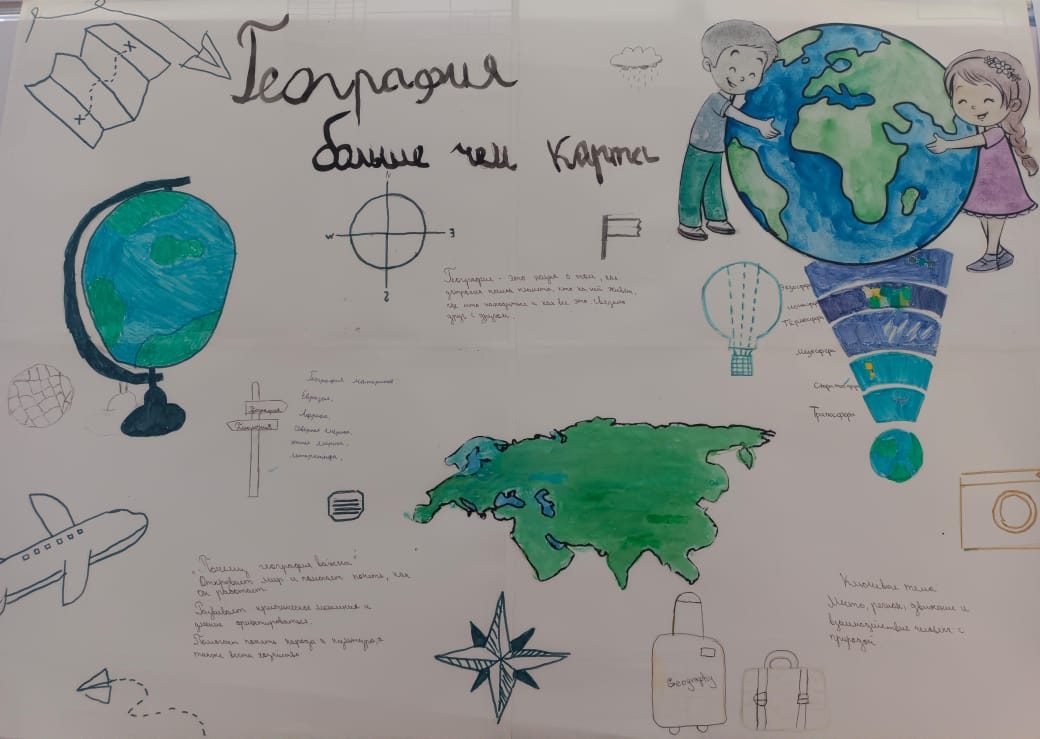 География
больше чем карта
N
W
З
S
География - это наука о том, как
устроена наша планета, кто на ней живёт,
где что находится и как все это связано
друг с другом.
Экзосфера
Термосфера
Мезосфера
Стратосфера
Тропосфера
География материков:
Евразия,
Африка,
Северная Америка,
Южная Америка,
Антарктида,
География
"Почему география важна"
Открывает мир и помогает понять, как
он работает.
Развивает критическое мышление и
умение ориентироваться.
Помогает понять народа и культуру, а
также вести хозяйство.
Ключевые тема
Место, регион, движение и
взаимодействие человека с
природой.
Geography